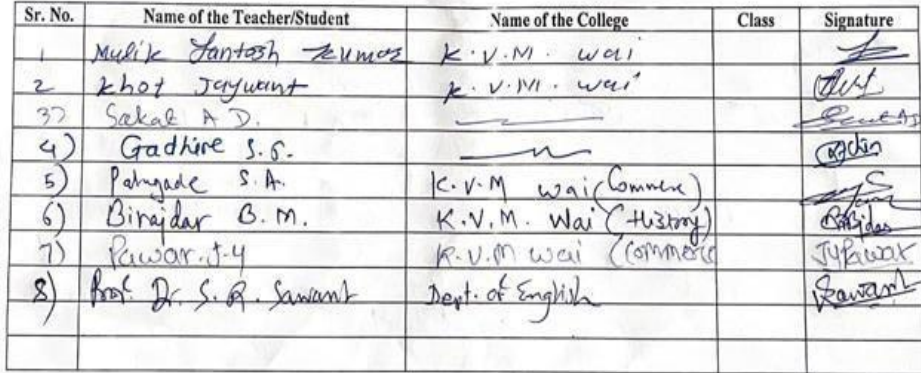 Sr. No. Name of the Teacher/Student Name of the College Class Signature
1 Mulik Santosh Kumar K.V.M. wai
2 Khot Jaywant K.V.M. wai
3) Sakat A D.
4) Gadhire S.G.
5) S.A. K.V.M wai (Commerce)
6) Birajdar B.M. K.V.M. Wai (History)
7) Pawar J.Y K.V.M wai (Commerce JYPawar
8) Prof. Dr. S.R. Sawant Dept. of English Sawant